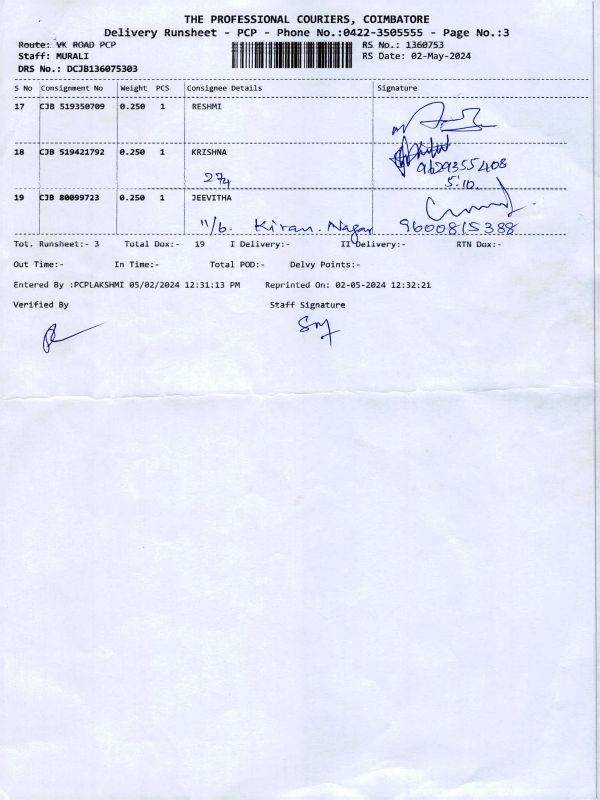 THE PROFESSIONAL COURIERS, COIMBATORE
Delivery Runsheet - PCP - Phone No.:0422-3505555 - Page No.:3
Route: VK ROAD PCP
RS No.: 1360753
Staff: MURALI
RS Date: 02-May-2024
DRS No.: DCJB136075303
S No Consignment No Weight PCS Consignee Details Signature
17 CJB 519350709 0.250 1 RESHMI
18 CJB 519421792 0.250 1 KRISHNA
274 9629355408
5:10.
19 CJB 80099723 0.250 1 JEEVITHA
11/6. Kiran. Nagar 9600815388
Tot. Runsheet:- 3 Total Dox:- 19 I Delivery:- II Delivery:- RTN Dox:-
Out Time:- In Time:- Total POD:- Delvy Points:-
Entered By :PCPLAKSHMI 05/02/2024 12:31:13 PM Reprinted On: 02-05-2024 12:32:21
Verified By Staff Signature